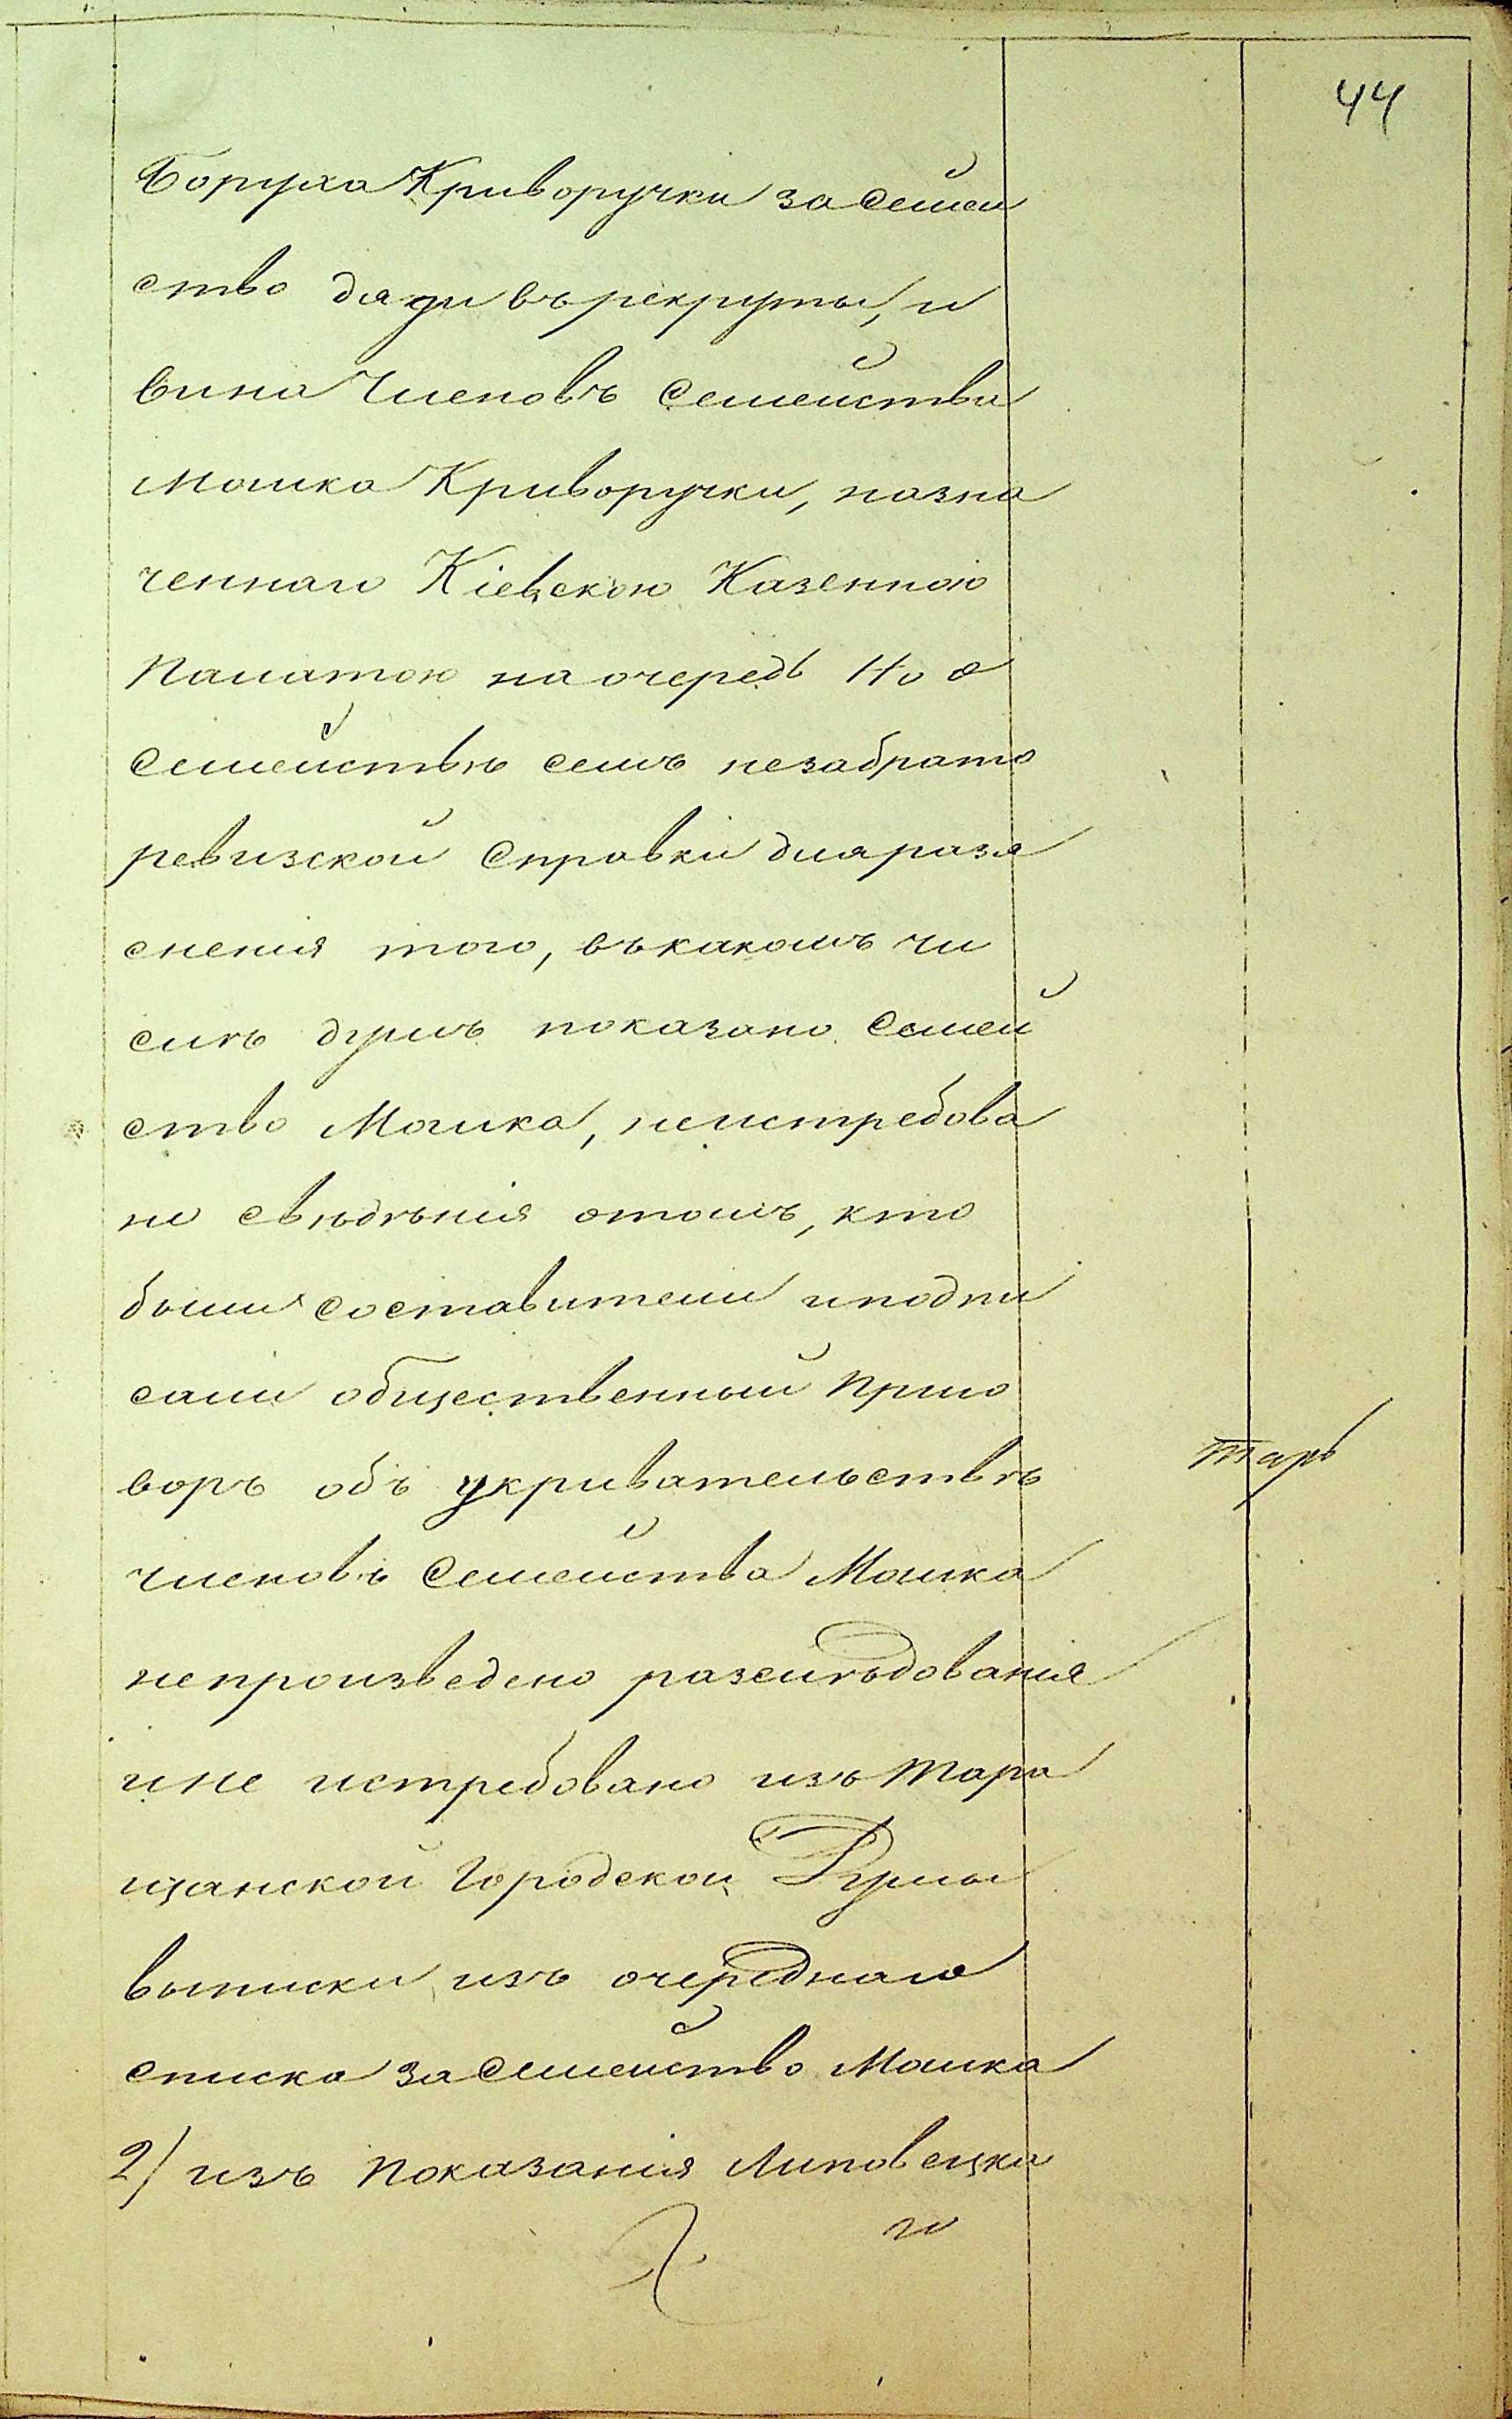 44
Боруха Криворучки за семей
ство дяди въ рекруты, и
вина Членовъ Семейства
Мошка Криворучки, назна
ченнаго Кіевскою Казенною
Палатою на очередь Но о
Семействѣ семъ незабрато
ревизской справки для разъя
сненія того, въ какомъ чи
слѣ душъ показано Семей
ство Мошка, неистребова
но свѣдѣнія отомъ, кто
были составители иподпи
сали общественный Приго
воръ объ укривательствѣ
членовъ Семейства Мошка
непроизведено разслѣдованія
ине истребовано изъ Тара
щанской Городской Думы
выписки изъ очереднаго
списка за Семейство Мошка
2) изъ Показанія Липовецка
го